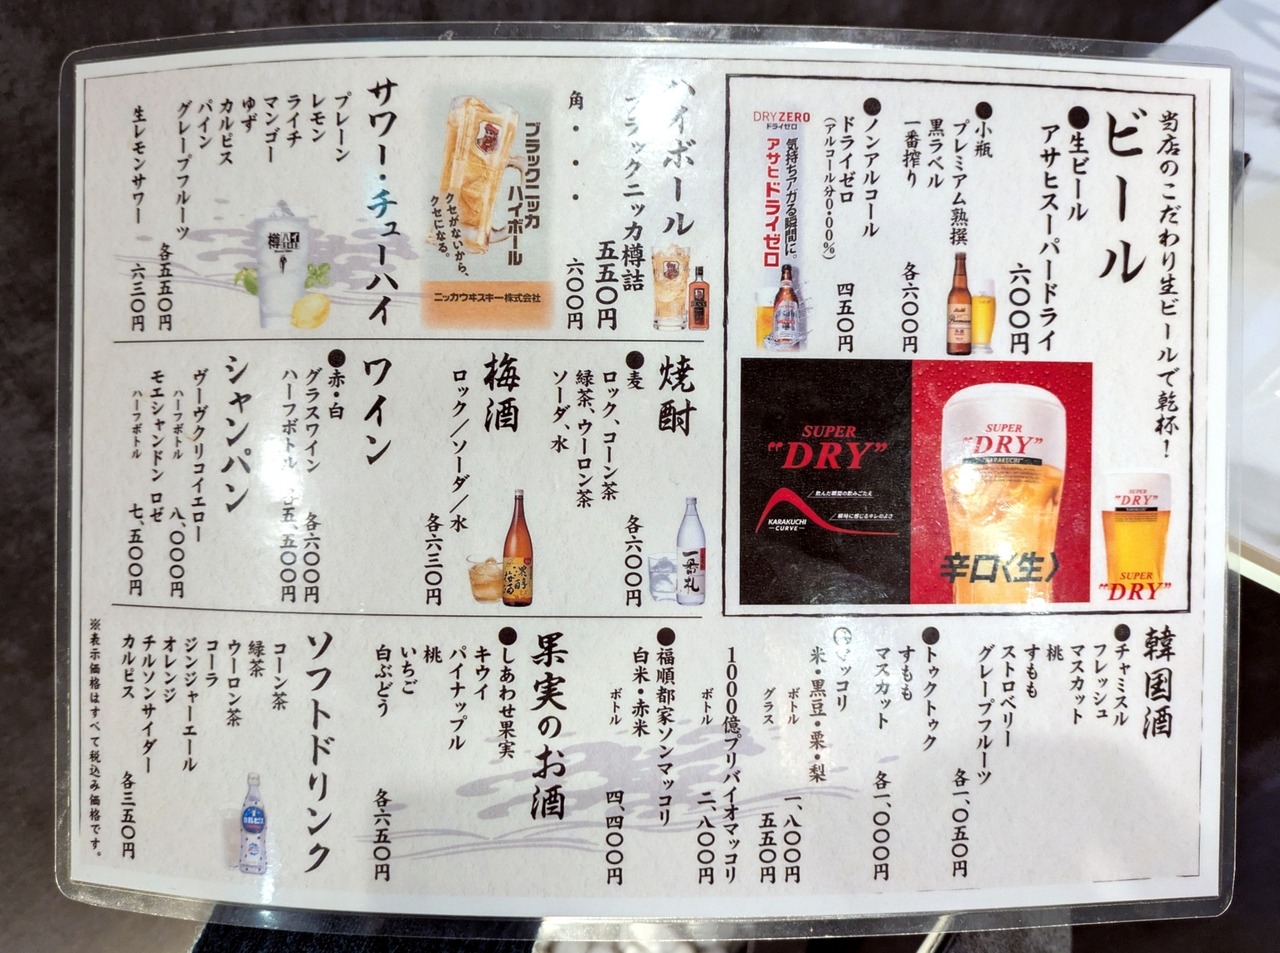 当店のこだわり生ビールで乾杯！
ビール
●生ビール
アサヒスーパードライ
六〇〇円
●小瓶
プレミアム熟撰
黒ラベル
一番搾り
各六〇〇円
●ノンアルコール
ドライゼロ
(アルコール分0.00%)
四五〇円
DRYZERO
ドライゼロ
気持ちアガる瞬間に。
アサヒドライゼロ
SUPER
"DRY"
飲んだ瞬間の飲みごたえ
瞬時に感じるキレのよさ
KARAKUCHI
CURVE
SUPER
"DRY"
KARAKUCHI
辛口〈生〉
SUPER
"DRY"
SUPER
"DRY"
ハイボール
ブラックニッカ樽詰
五五〇円
角・・・
六〇〇円
ブラックニッカ
ハイボール
クセがないから、
クセになる。
ニッカウヰスキー株式会社
サワー・チューハイ
プレーン
レモン
ライチ
マンゴー
ゆず
カルピス
パイン
グレープフルーツ
各五五〇円
生レモンサワー
六三〇円
樽ハイ
焼酎
●麦
ロック、コーン茶
緑茶、ウーロン茶
ソーダ、水
各六〇〇円
一番札
梅酒
ロック／ソーダ／水
各六三〇円
ワイン
●赤・白
グラスワイン
各六〇〇円
ハーフボトル
各五、五〇〇円
シャンパン
ヴーヴクリコイエロー
ハーフボトル
八、〇〇〇円
モエシャンドン ロゼ
ハーフボトル
七、五〇〇円
韓国酒
●チャミスル
フレッシュ
マスカット
桃
すもも
ストロベリー
グレープフルーツ
各一、〇五〇円
●トゥクトゥク
すもも
マスカット
各一、〇〇〇円
マッコリ
米・黒豆・栗・梨
ボトル
一、八〇〇円
グラス
五五〇円
1000億プリバイオマッコリ
ボトル
二、八〇〇円
●福順都家ソンマッコリ
白米・赤米
ボトル
四、四〇〇円
果実のお酒
●しあわせ果実
キウイ
パイナップル
桃
いちご
白ぶどう
各六五〇円
ソフトドリンク
コーン茶
緑茶
ウーロン茶
コーラ
ジンジャーエール
オレンジ
チルソンサイダー
カルピス
各三五〇円
※表示価格はすべて税込み価格です。